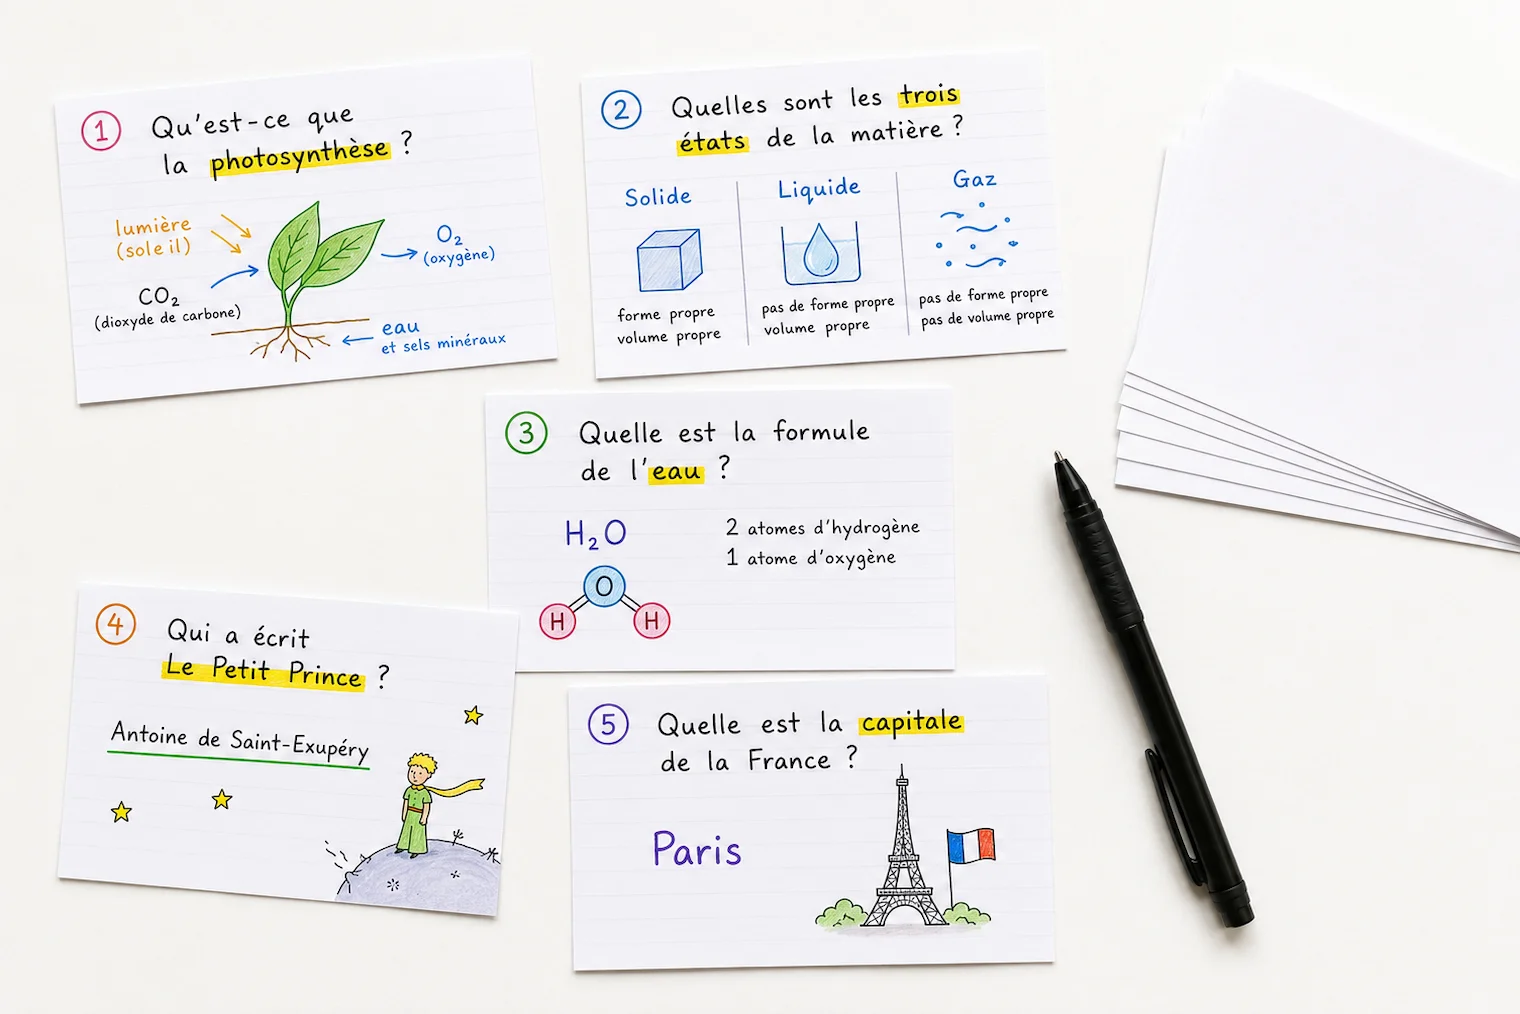 1
Qu'est-ce que
la photosynthèse ?
lumière
(soleil)
CO₂
(dioxyde de carbone)
O₂
(oxygène)
eau
et sels minéraux
2
Quelles sont les trois
états de la matière ?
Solide
forme propre
volume propre
Liquide
pas de forme propre
volume propre
Gaz
pas de forme propre
pas de volume propre
3
Quelle est la formule
de l'eau ?
H₂O
O
H H
2 atomes d'hydrogène
1 atome d'oxygène
4
Qui a écrit
Le Petit Prince ?
Antoine de Saint-Exupéry
5
Quelle est la capitale
de la France ?
Paris